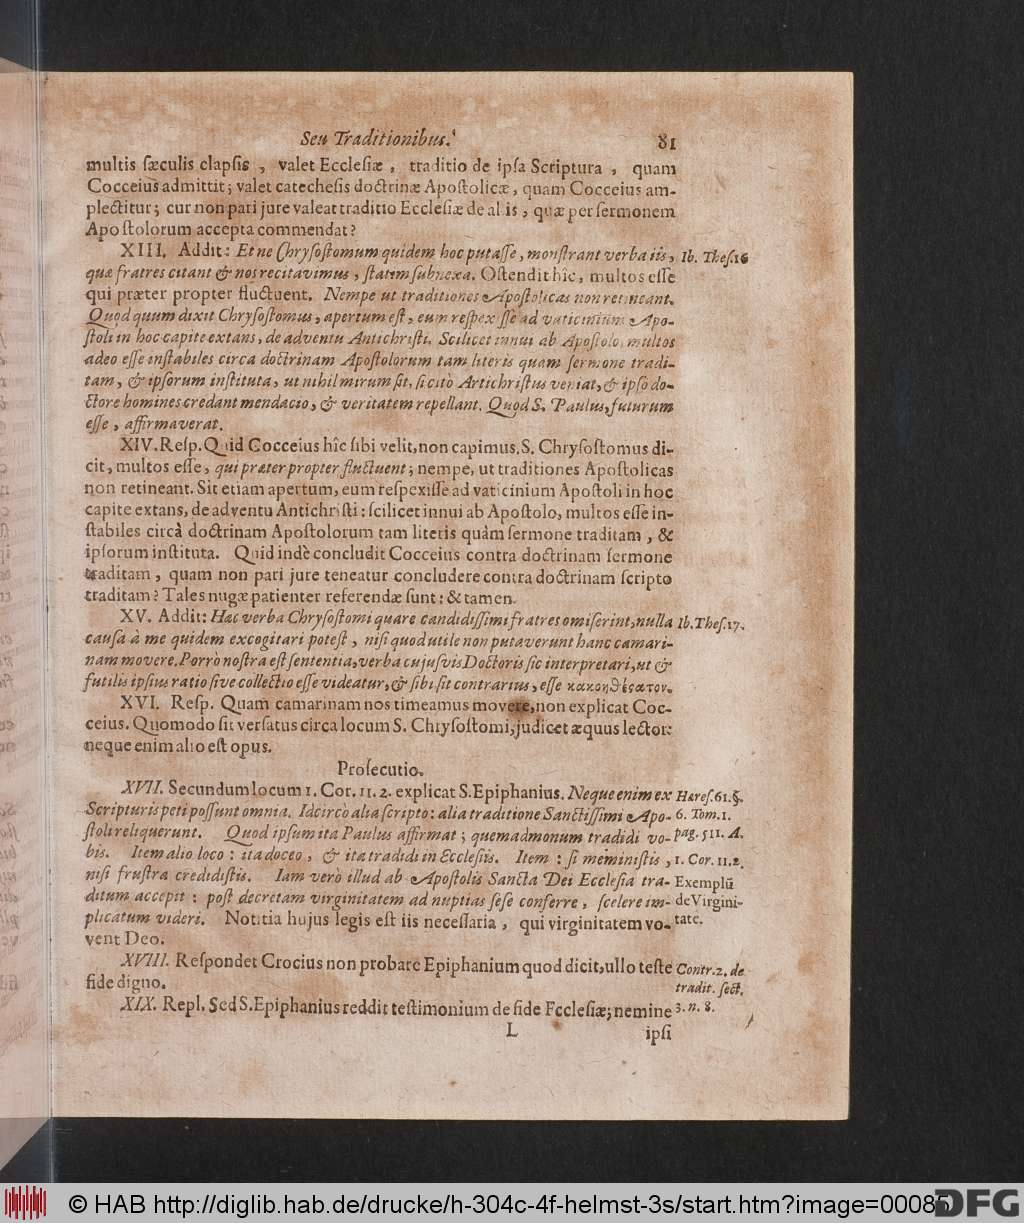 Seu Traditionibus. 81
multis sæculis elapsis, valet Ecclesiæ, traditio de ipsa Scriptura, quam
Cocceius admittit; valet catechesis doctrinæ Apostolicæ, quam Cocceius am-
plectitur; cur non pari jure valeat traditio Ecclesiæ de aliis, quæ per sermonem
Apostolorum accepta commendat?
XIII. Addit: Et ne Chrysostomum quidem hoc putasse, monstrant verba iis, Ib. Thes. 16
quæ fratres citant & nos recitavimus, statim subnexa. Ostendit hîc, multos esse
qui præter propter fluctuent. Nempe ut traditiones Apostolicas non retineant.
Quod quum dixit Chrysostomus, apertum est, eum respexisse ad vaticinium Apo-
stoli in hoc capite extans, de adventu Antichristi. Scilicet innui ab Apostolo, multos
adeo esse instabiles circa doctrinam Apostolorum tam literis quam sermone tradi-
tam, & ipsorum instituta, ut nihil mirum sit, si citò Antichristus veniat, & ipso do-
ctore homines credant mendacio, & veritatem repellant. Quod S. Paulus, futurum
esse, affirmaverat.
XIV. Resp. Quid Cocceius hîc sibi velit, non capimus. S. Chrysostomus di-
cit, multos esse, qui præter propter fluctuent; nempe, ut traditiones Apostolicas
non retineant. Sit etiam apertum, eum respexisse ad vaticinium Apostoli in hoc
capite extans, de adventu Antichristi: scilicet innui ab Apostolo, multos esse in-
stabiles circà doctrinam Apostolorum tam literis quàm sermone traditam, &
ipsorum instituta. Quid indè concludit Cocceius contra doctrinam sermone
traditam, quam non pari jure teneatur concludere contra doctrinam scripto
traditam? Tales nugæ patienter referendæ sunt: & tamen.
XV. Addit: Hæc verba Chrysostomi quare candidissimi fratres omiserint, nulla Ib. Thes. 17.
causa à me quidem excogitari potest, nisi quod utile non putaverunt hanc camari-
nam movere. Porrò nostra est sententia, verba cujusvis Doctoris sic interpretari, ut &
futilis ipsius ratio sive collectio esse videatur, & sibi sit contrarius, esse κακοηθέςατον.
XVI. Resp. Quam camarinam nos timeamus movere, non explicat Coc-
ceius. Quomodo sit versatus circa locum S. Chrysostomi, judicet æquus lector:
neque enim alio est opus.
Prosecutio.
XVII. Secundum locum 1. Cor. 11. 2. explicat S. Epiphanius. Neque enim ex Hæres. 61. §.
Scripturis peti possunt omnia. Idcircò alia scripto: alia traditione Sanctissimi Apo- 6. Tom. 1.
stoli reliquerunt. Quod ipsum ita Paulus affirmat; quemadmonum tradidi vo- pag. 511. A.
bis. Item alio loco: ita doceo, & ita tradidi in Ecclesiis. Item: si meministis, 1. Cor. 11. 2.
nisi frustra credidistis. Iam verò illud ab Apostolis Sancta Dei Ecclesia tra- Exemplũ
ditum accepit: post decretam virginitatem ad nuptias sese conferre, scelere im- de Virgini-
plicatum videri. Notitia hujus legis est iis necessaria, qui virginitatem vo- tate.
vent Deo.
XVIII. Respondet Crocius non probare Epiphanium quod dicit, ullo teste Contr. 2. de
fide digno. tradit. sect.
XIX. Repl. Sed S. Epiphanius reddit testimonium de fide Ecclesiæ; nemine 3. n. 8.
L ipsi
© HAB http://diglib.hab.de/drucke/h-304c-4f-helmst-3s/start.htm?image=00085
DFG